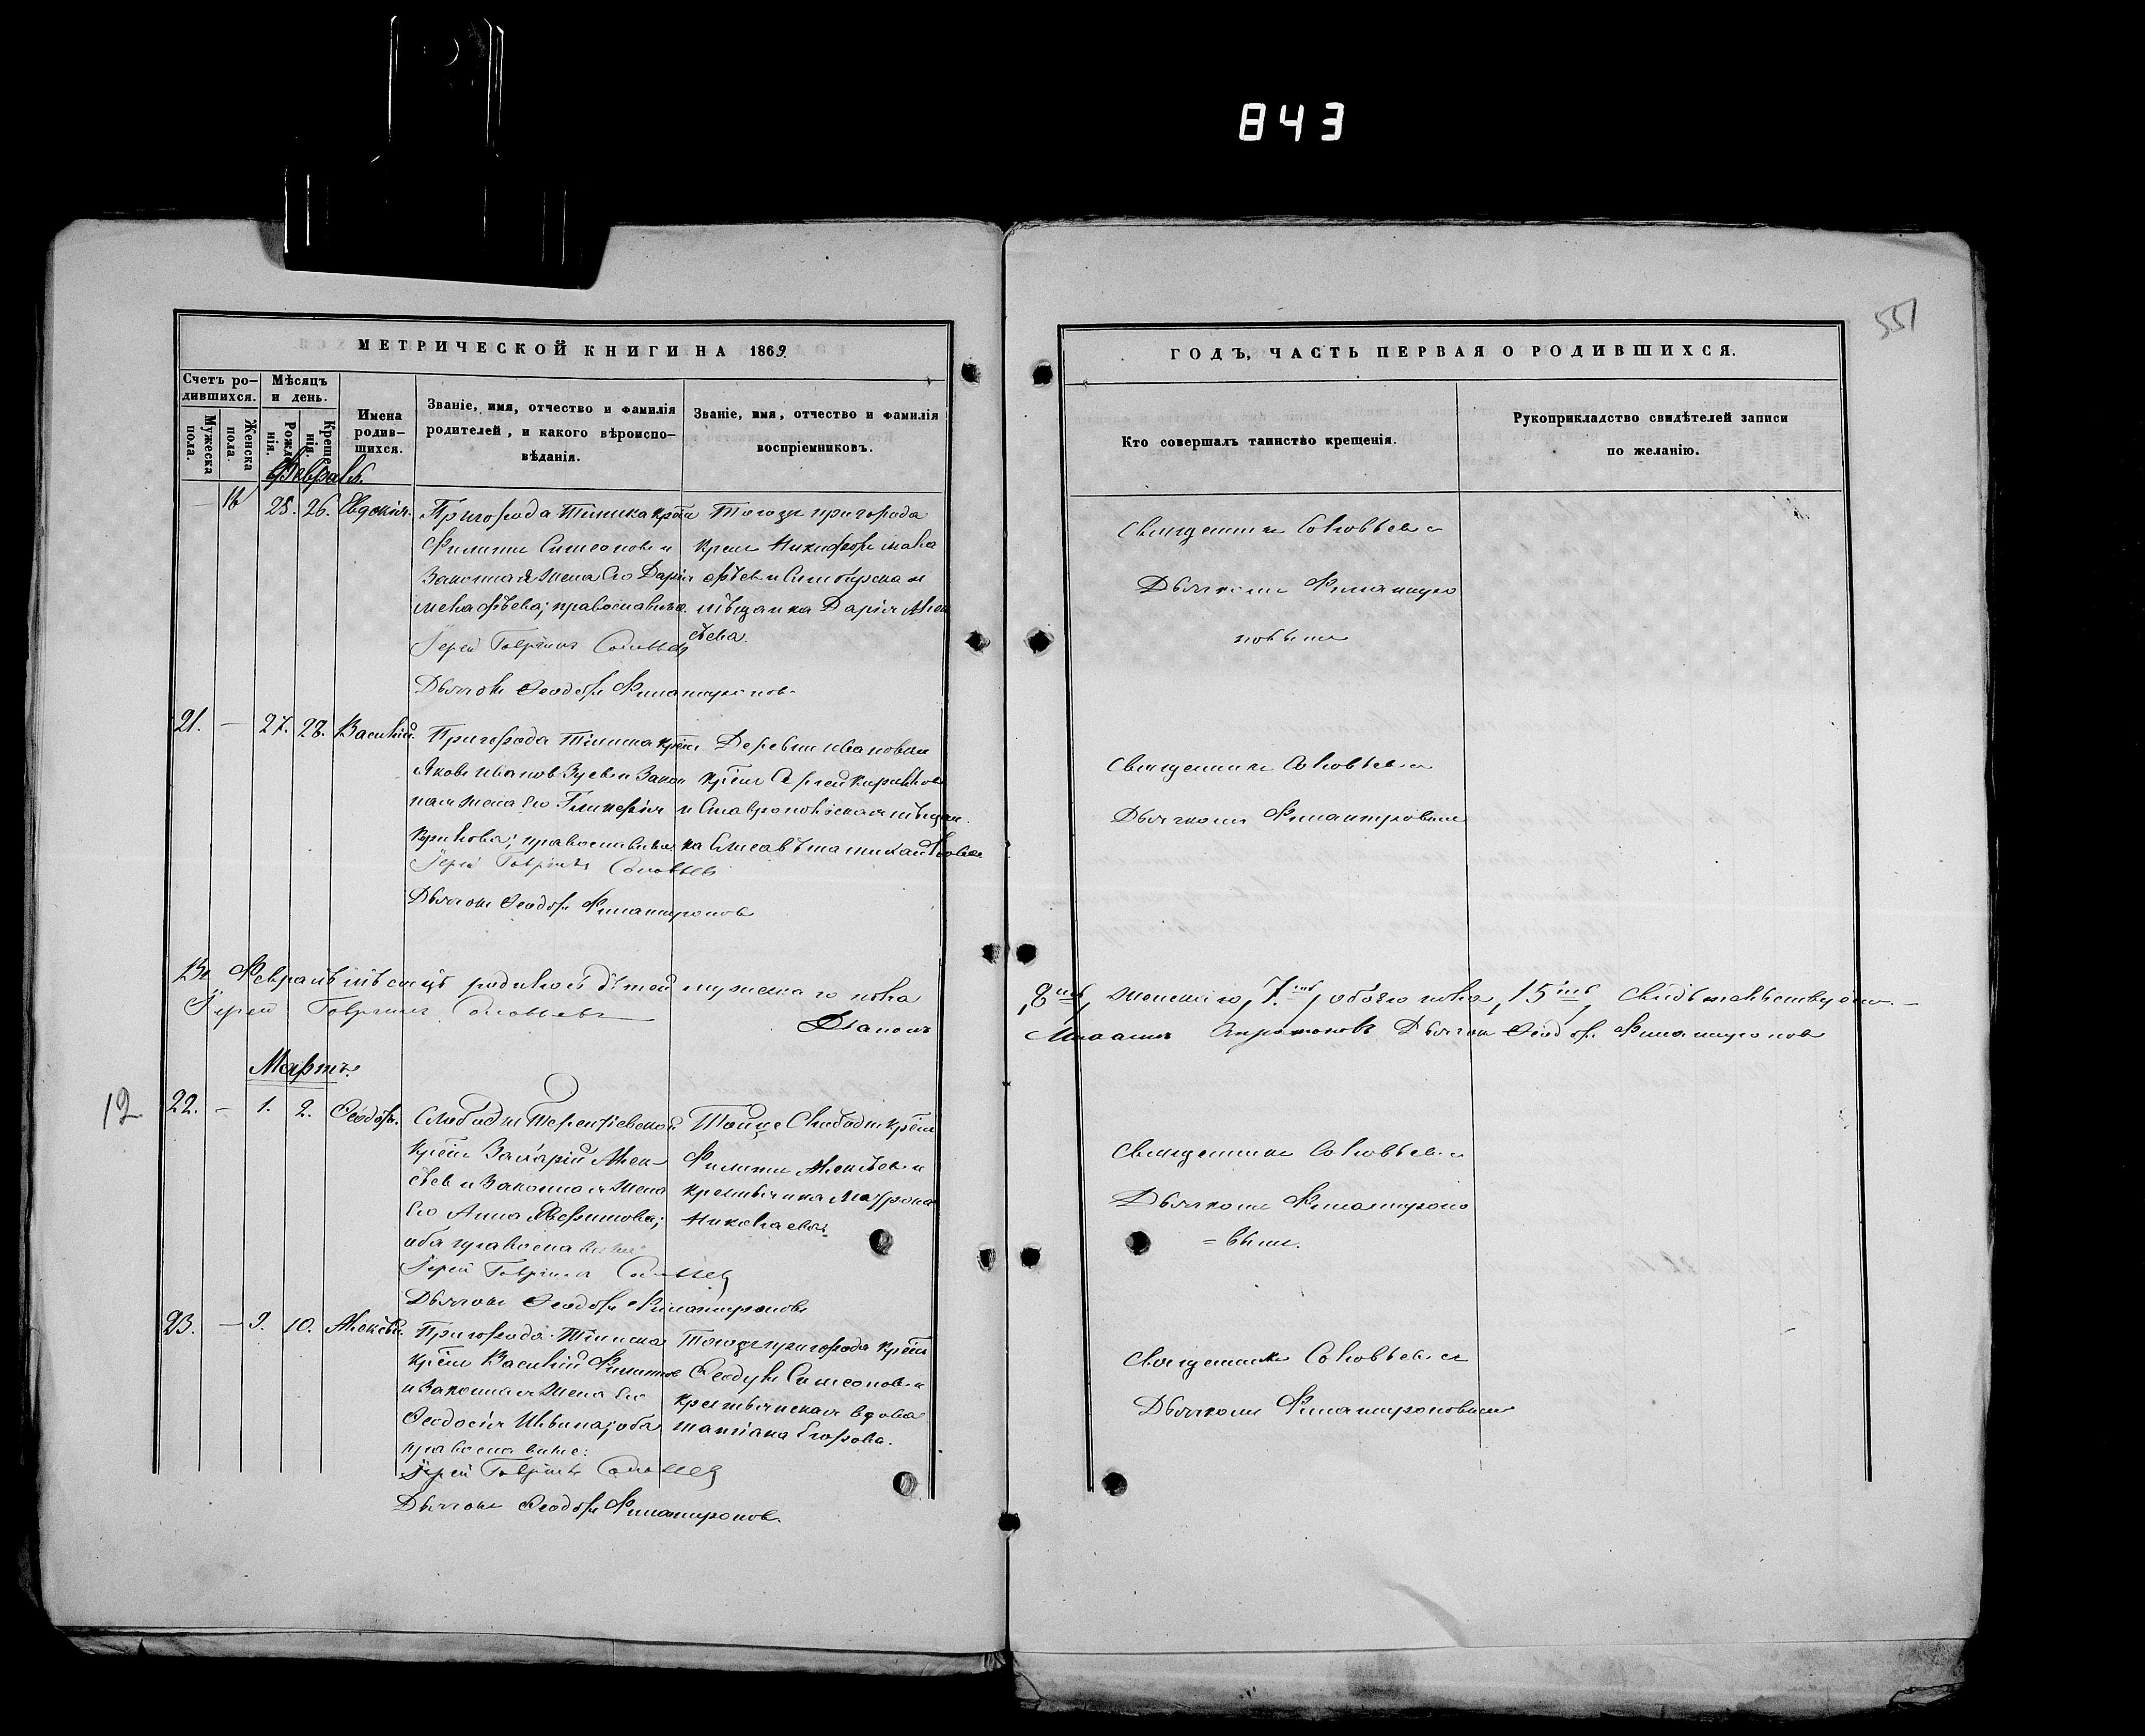 843
551
МЕТРИЧЕСКОЙ КНИГИ НА 1869.
ГОДЪ, ЧАСТЬ ПЕРВАЯ О РОДИВШИХСЯ.
Счетъ ро-
дившихся.
Мужеска пола.
Женска пола.
Мѣсяцъ
и день.
Рожде-
нія.
Креще-
нія.
Имена
родив-
шихся.
Званіе, имя, отчество и фамилія
родителей, и какого вѣроиспо-
вѣданія.
Званіе, имя, отчество и фамилія
воспріемниковъ.
Кто совершалъ таинство крещенія.
Рукоприкладство свидѣтелей записи
по желанію.
Февраль.
— 25. 26. Евдокія.
Пригорода Тіинска
Филиппъ Симеоновъ и
Законная жена его Дарія
православные.
Іерей Гавріилъ Соловьевъ
Дьячокъ Ѳеодоръ Филантроповъ
Тогоже пригорода
Никифоръ
и Симбирская
мѣщанка Дарія Алек
сѣева.
Священникъ Соловьевъ съ
Дьячкомъ Филантро
повымъ
21. — 27. 28. Василій.
Пригорода Тіинска крест.
Яковъ Ивановъ Зуевъ и Закон
ная жена его Гликерія
Кирилова; православные
Іерей Гавріилъ Соловьевъ
Дьячокъ Ѳеодоръ Филантроповъ
Деревни Ивановки
крест. Сергей Кириловъ
и Ставропольская мѣщан.
ка Елисавета Михайлова
Священникъ Соловьевъ съ
Дьячкомъ Филантроповымъ
Въ Февралѣ мѣсяцѣ родилось дѣтей мужеска го пола
8мь, женскаго, 7мь, обоего пола, 15ть, Свидѣтельствуемъ.
Іерей Гавріилъ Соловьевъ
Діаконъ
Дьячокъ Ѳеодоръ Филантроповъ
Мартъ.
12
22. — 1. 2. Ѳеодоръ.
Слободы Терентіевской
крест. Захарій Алек-
сѣевъ и Законная жена
его Анна
оба православные
Іерей Гавріилъ Соловьевъ
Дьячокъ Ѳеодоръ Филантроповъ
Тойже Слободы крест.
Филиппъ Алексѣевъ и
крестьянка Матрона
Николаева.
Священникъ Соловьевъ съ
Дьячкомъ Филантропо
= вымъ.
23. — 9. 10. Алексѣй.
Пригорода Тіинска
крест. Василій Филиповъ
и Законная жена его
Ѳеодосія Ильина; оба
православные:
Іерей Гавріилъ Соловьевъ
Дьячокъ Ѳеодоръ Филантроповъ.
Тогоже пригорода крест.
Ѳеодулъ Симеоновъ и
крестьянская вдова
Татіана Егорова.
Священникъ Соловьевъ съ
Дьячкомъ Филантроповымъ